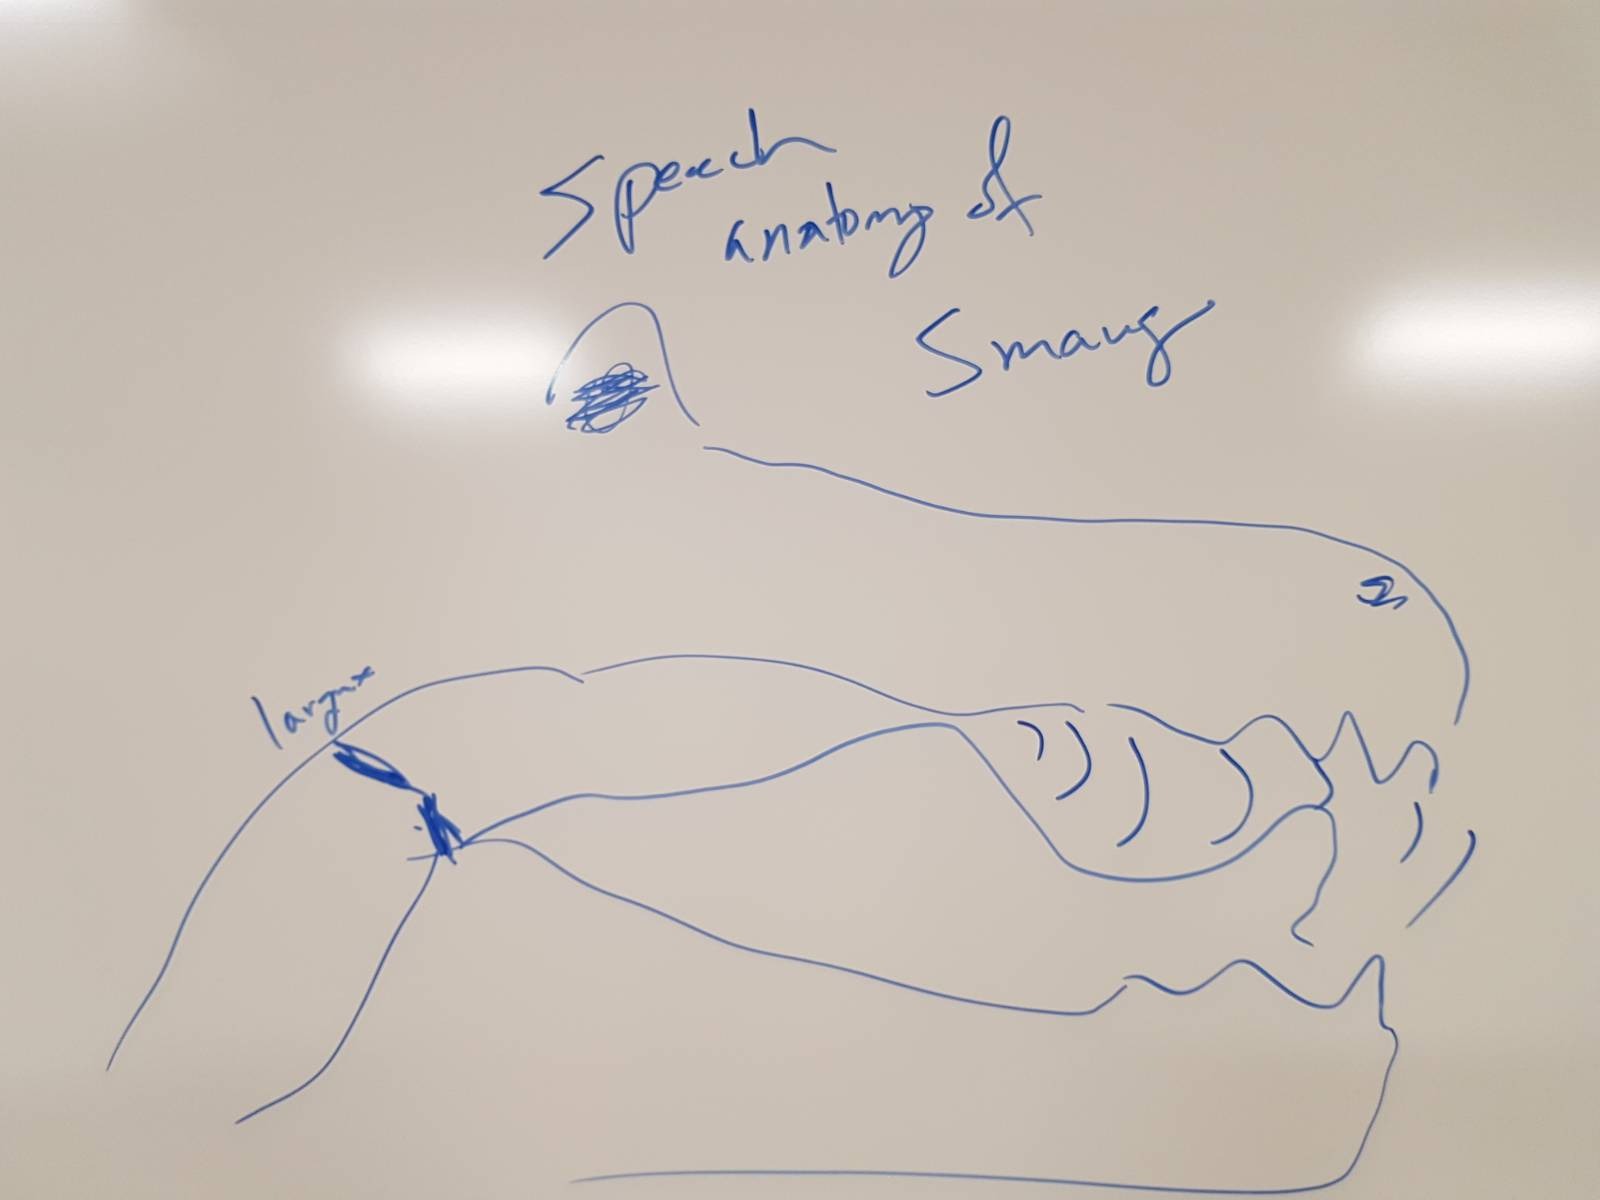 Speech
anatomy of
Smaug
larynx